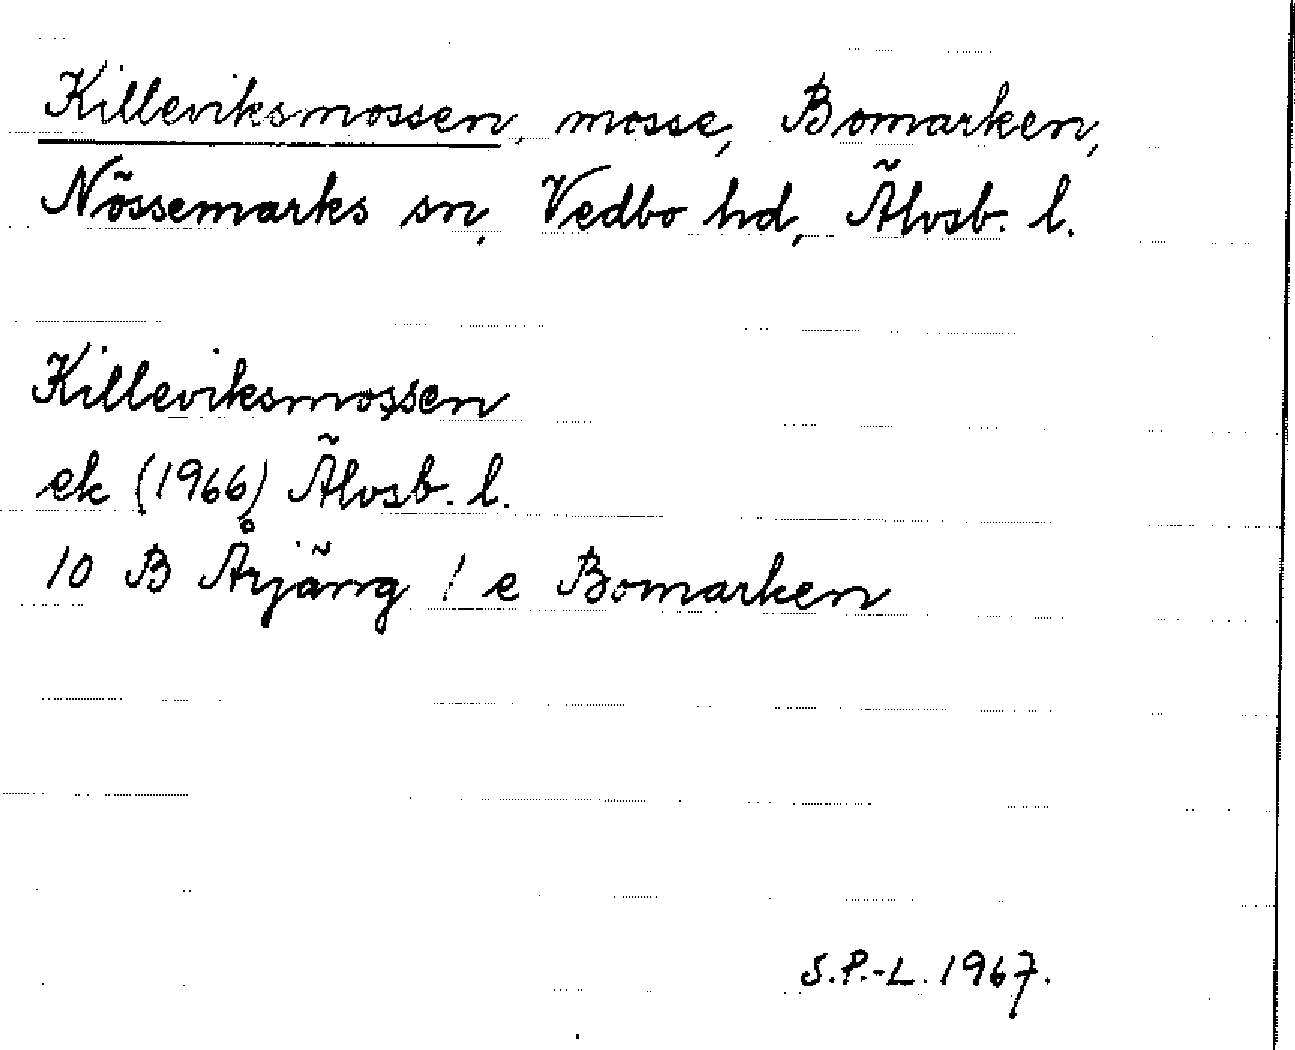 Killeviksmossen, mosse, Bomarken,
Nössemarks sn, Vedbo hd, Älvsb. l.
Killeviksmossen
ek (1966) Älvsb. l.
10 B Årjäng / e Bomarken
S.P.-L. 1967.